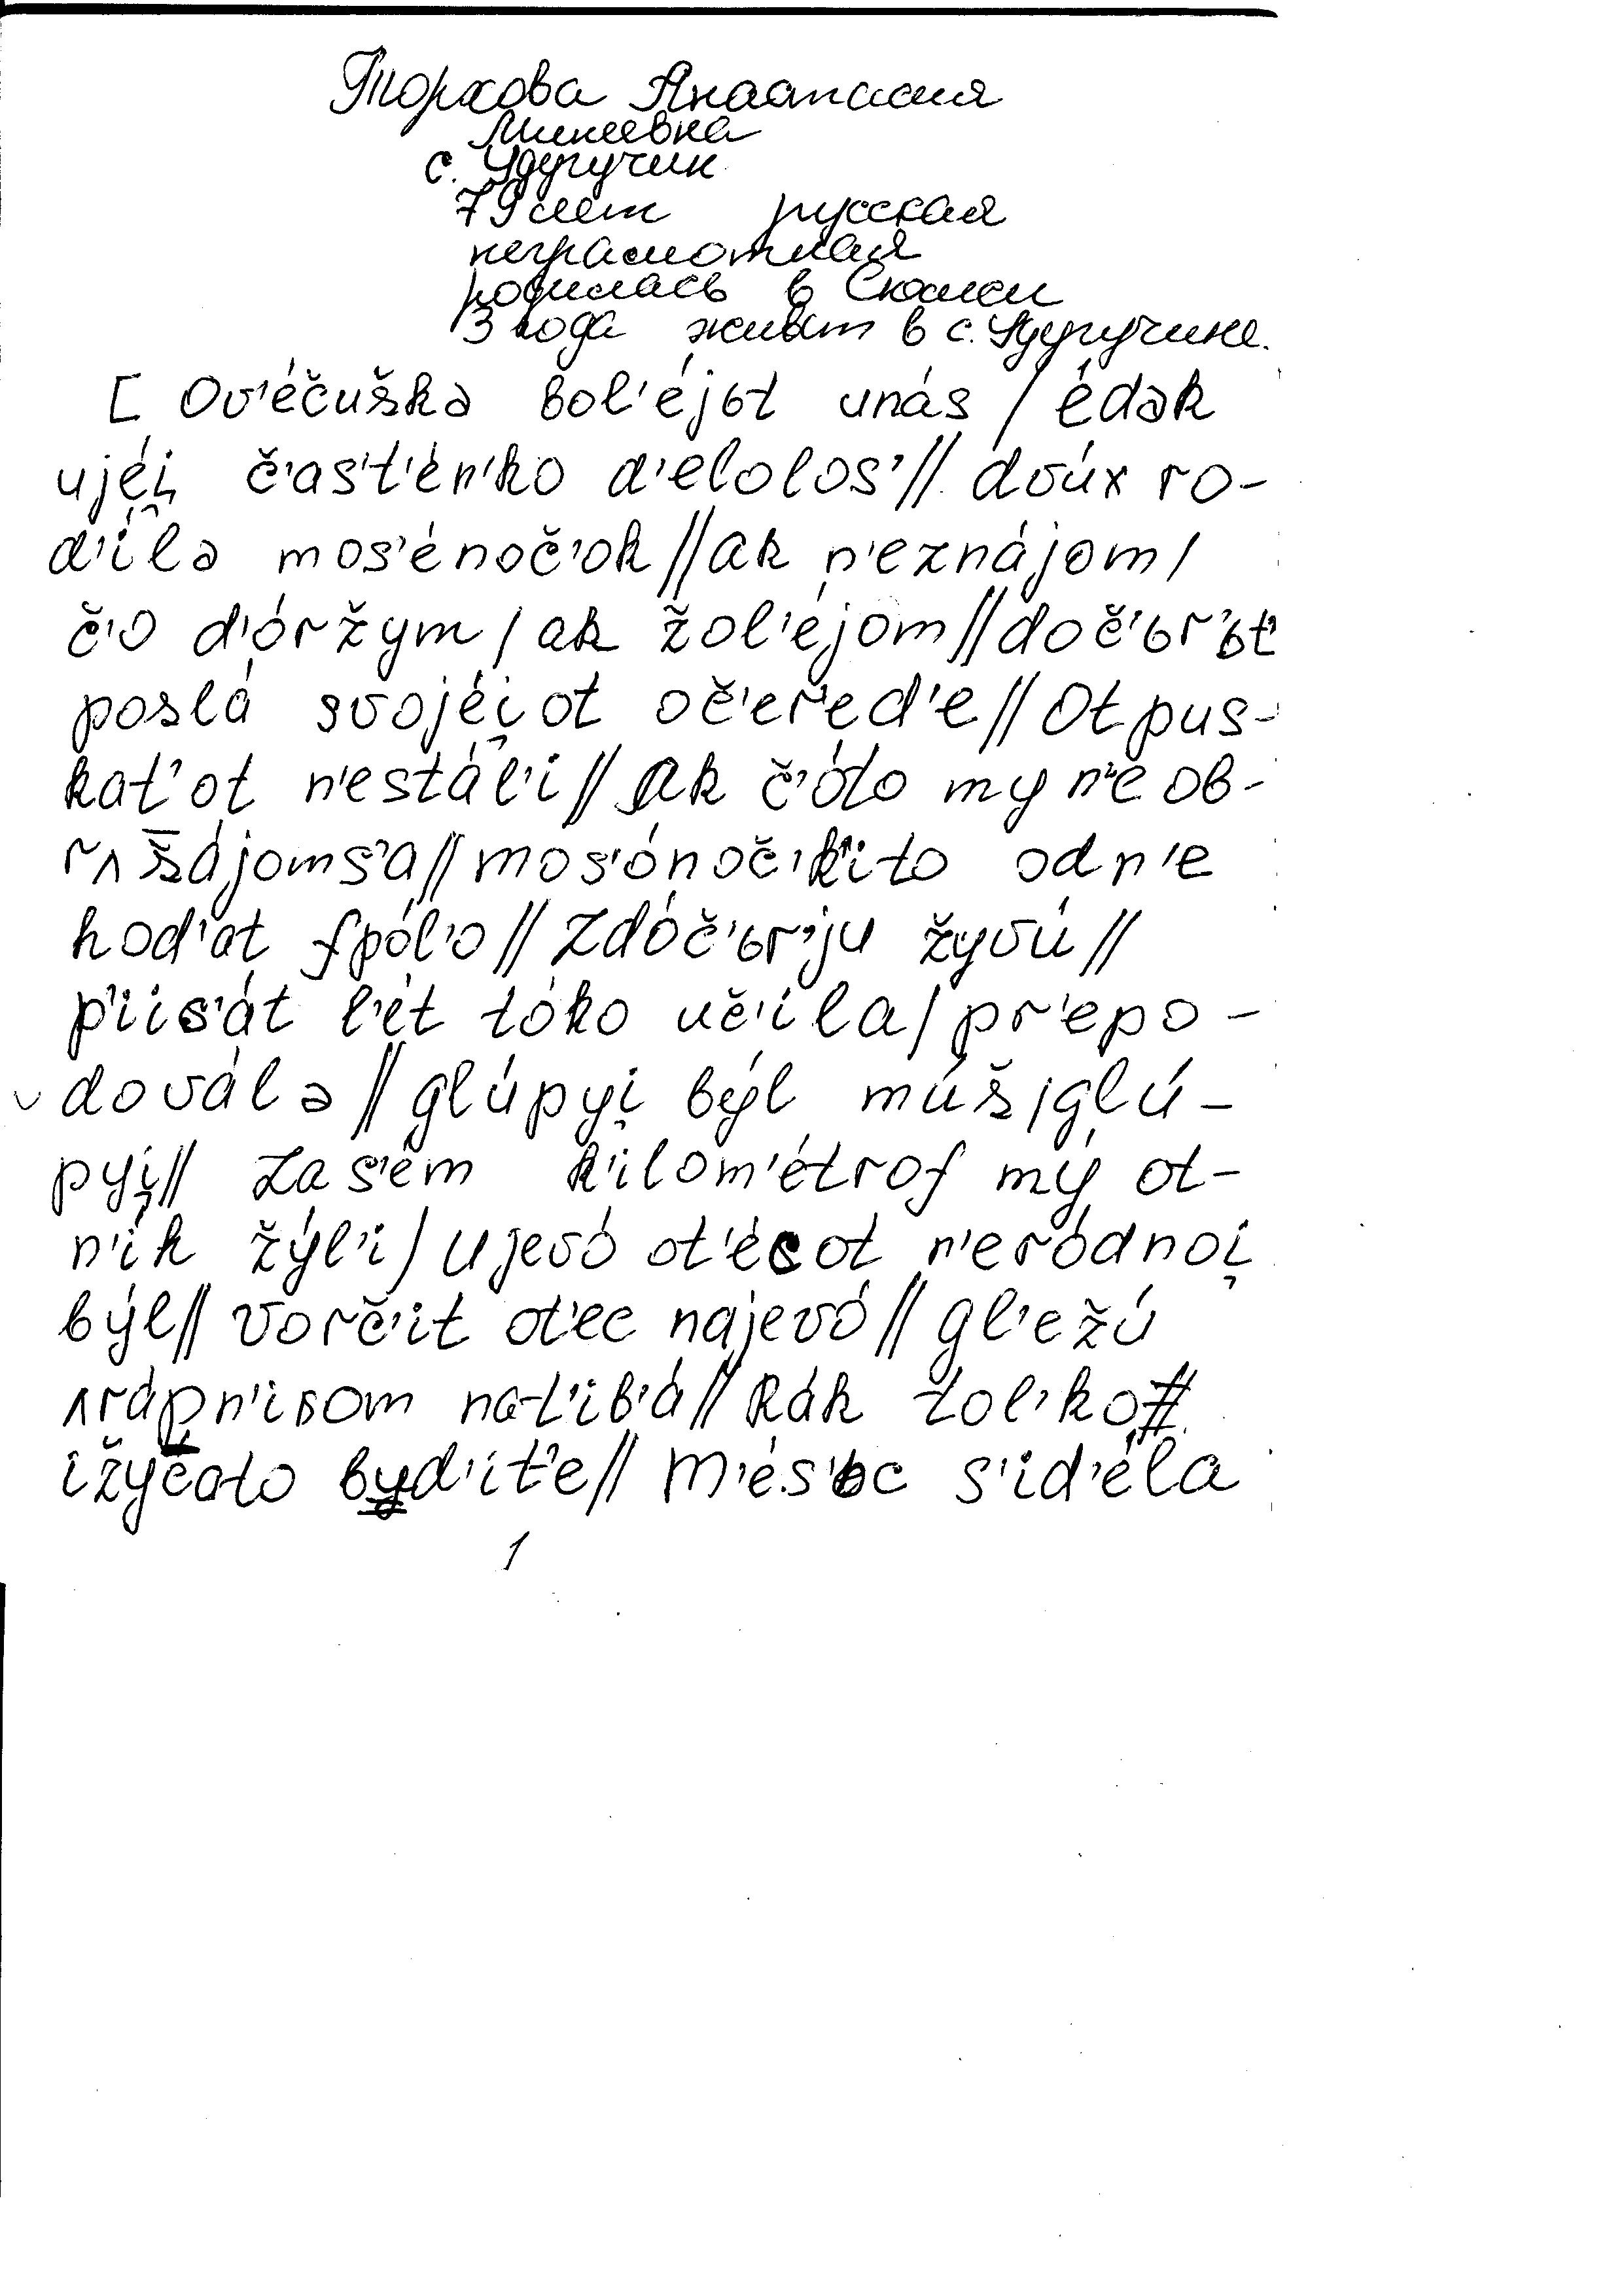 Торхова Анастасия
Минеевна
с. Удугучин
79 лет русская
неграмотная
родилась в Сюмси
3 года живёт в с. Удугучине.
[ ov'éčuškə bol'éjьt unás / édək
ujéi̯ č'as't'én'ko d'elolos' // dvúx ro-
d'ílə mos'énoč'ok // ak n'eznájom /
č'o d'óržym / ak žol'éjom // doč'ьr'ьt
poslá svojéi̯ot oč'er'ed'e // otpus-
kat'ot n'estál'i // ak č'óto my n'e ob-
rʌšájoms'a // mos'ónoč'k'ito odn'e
hod'at fpól'o // zdóč'ьr'ju žyvú //
p'iis'át l'ét tóko uč'ila / pr'epo-
doválə // glúpyi̯ býl múš / glú-
pyi̯ // zas'ém k'ilom'étrof mý ot-
n'ih žýl'i / ujevó ot'écot n'eródnoi̯
býl // vorč'ít ot'ec najevó // gl'ežú
ʌrápn'isom nat'ib'á // kák tol'ko //
ižyčoto byd'ít'e // m'és'ьc s'id'éla
1